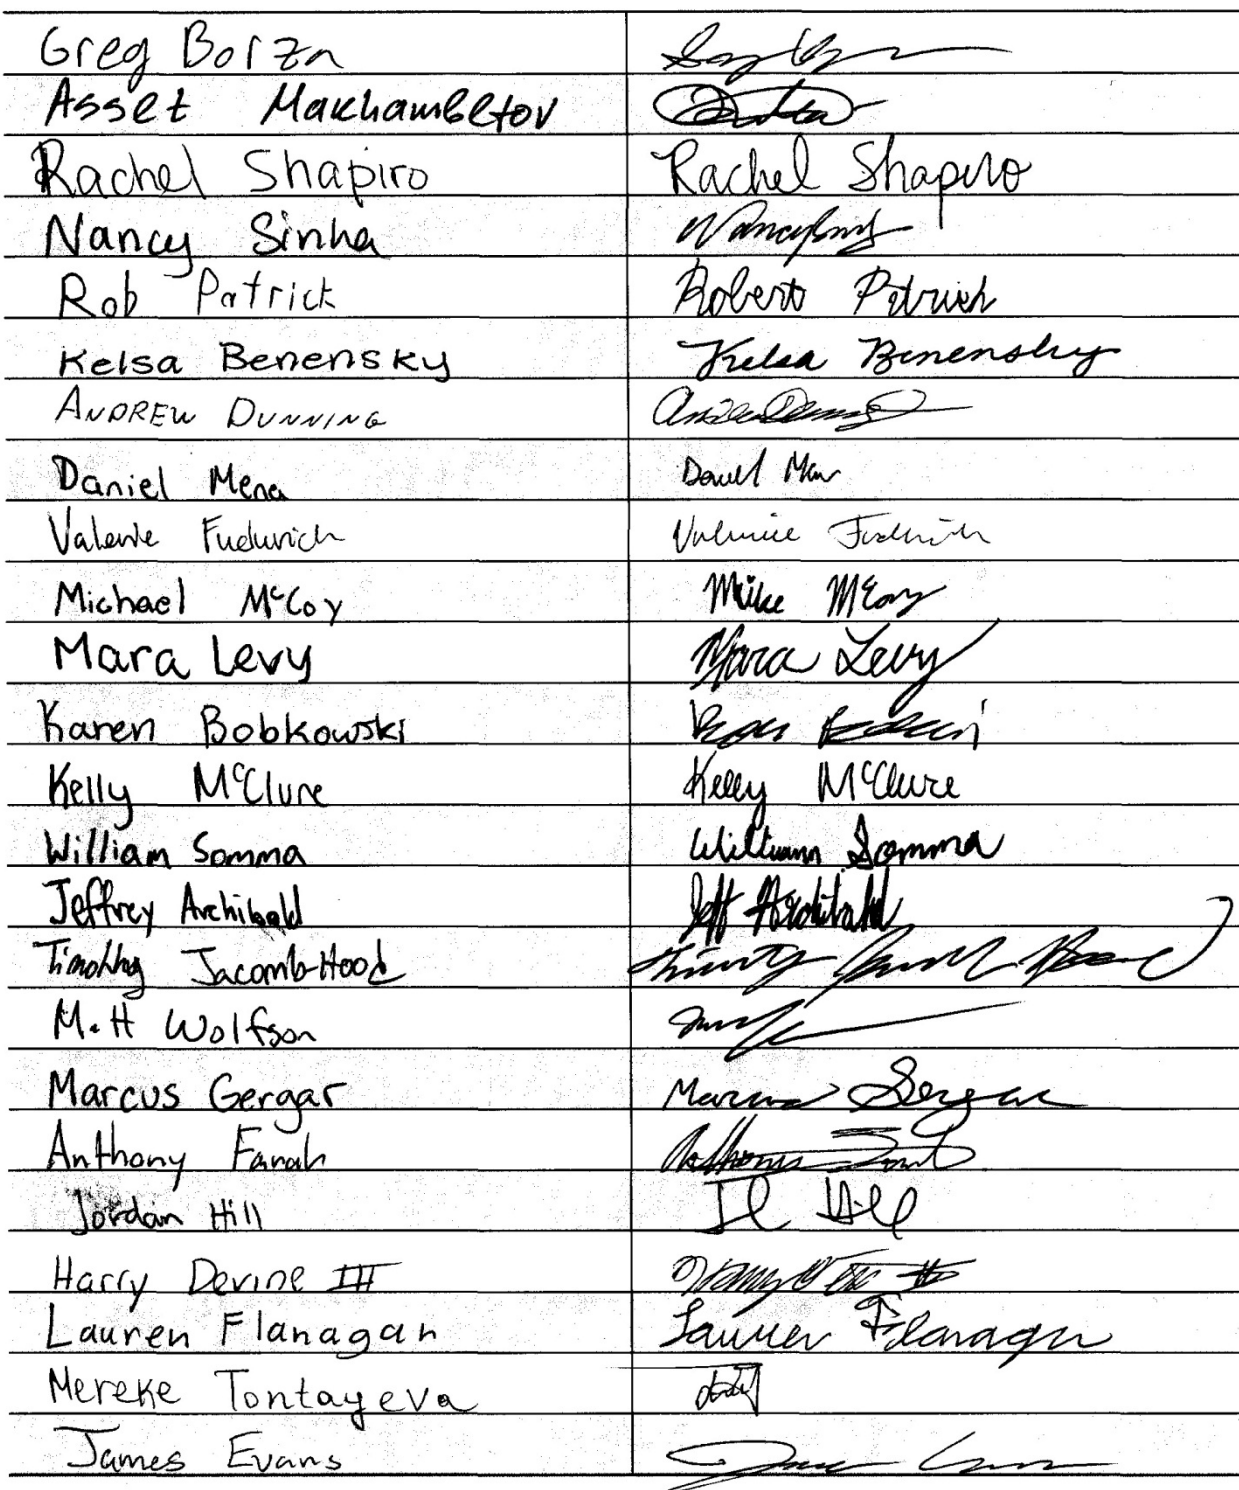 Greg Borza
Asset Makhambetov
Rachel Shapiro Rachel Shapiro
Nancy Sinha
Rob Patrick Robert Patrick
Kelsa Benensky Kelsa Benensky
ANDREW DUNNING
Daniel Mena Daniel Mena
Valerie
Michael McCoy Mike McCoy
Mara Levy Mara Levy
Karen Bobkowski
Kelly McClure Kelly McClure
William Somma William Somma
Jeffrey Archibald Jeff Archibald
Timothy Jacomb-Hood
Matt Wolfson
Marcus Gergar Marcus Gergar
Anthony Farah
Jordan Hill
Harry Devine III
Lauren Flanagan Lauren Flanagan
Mereke Tontayeva
James Evans